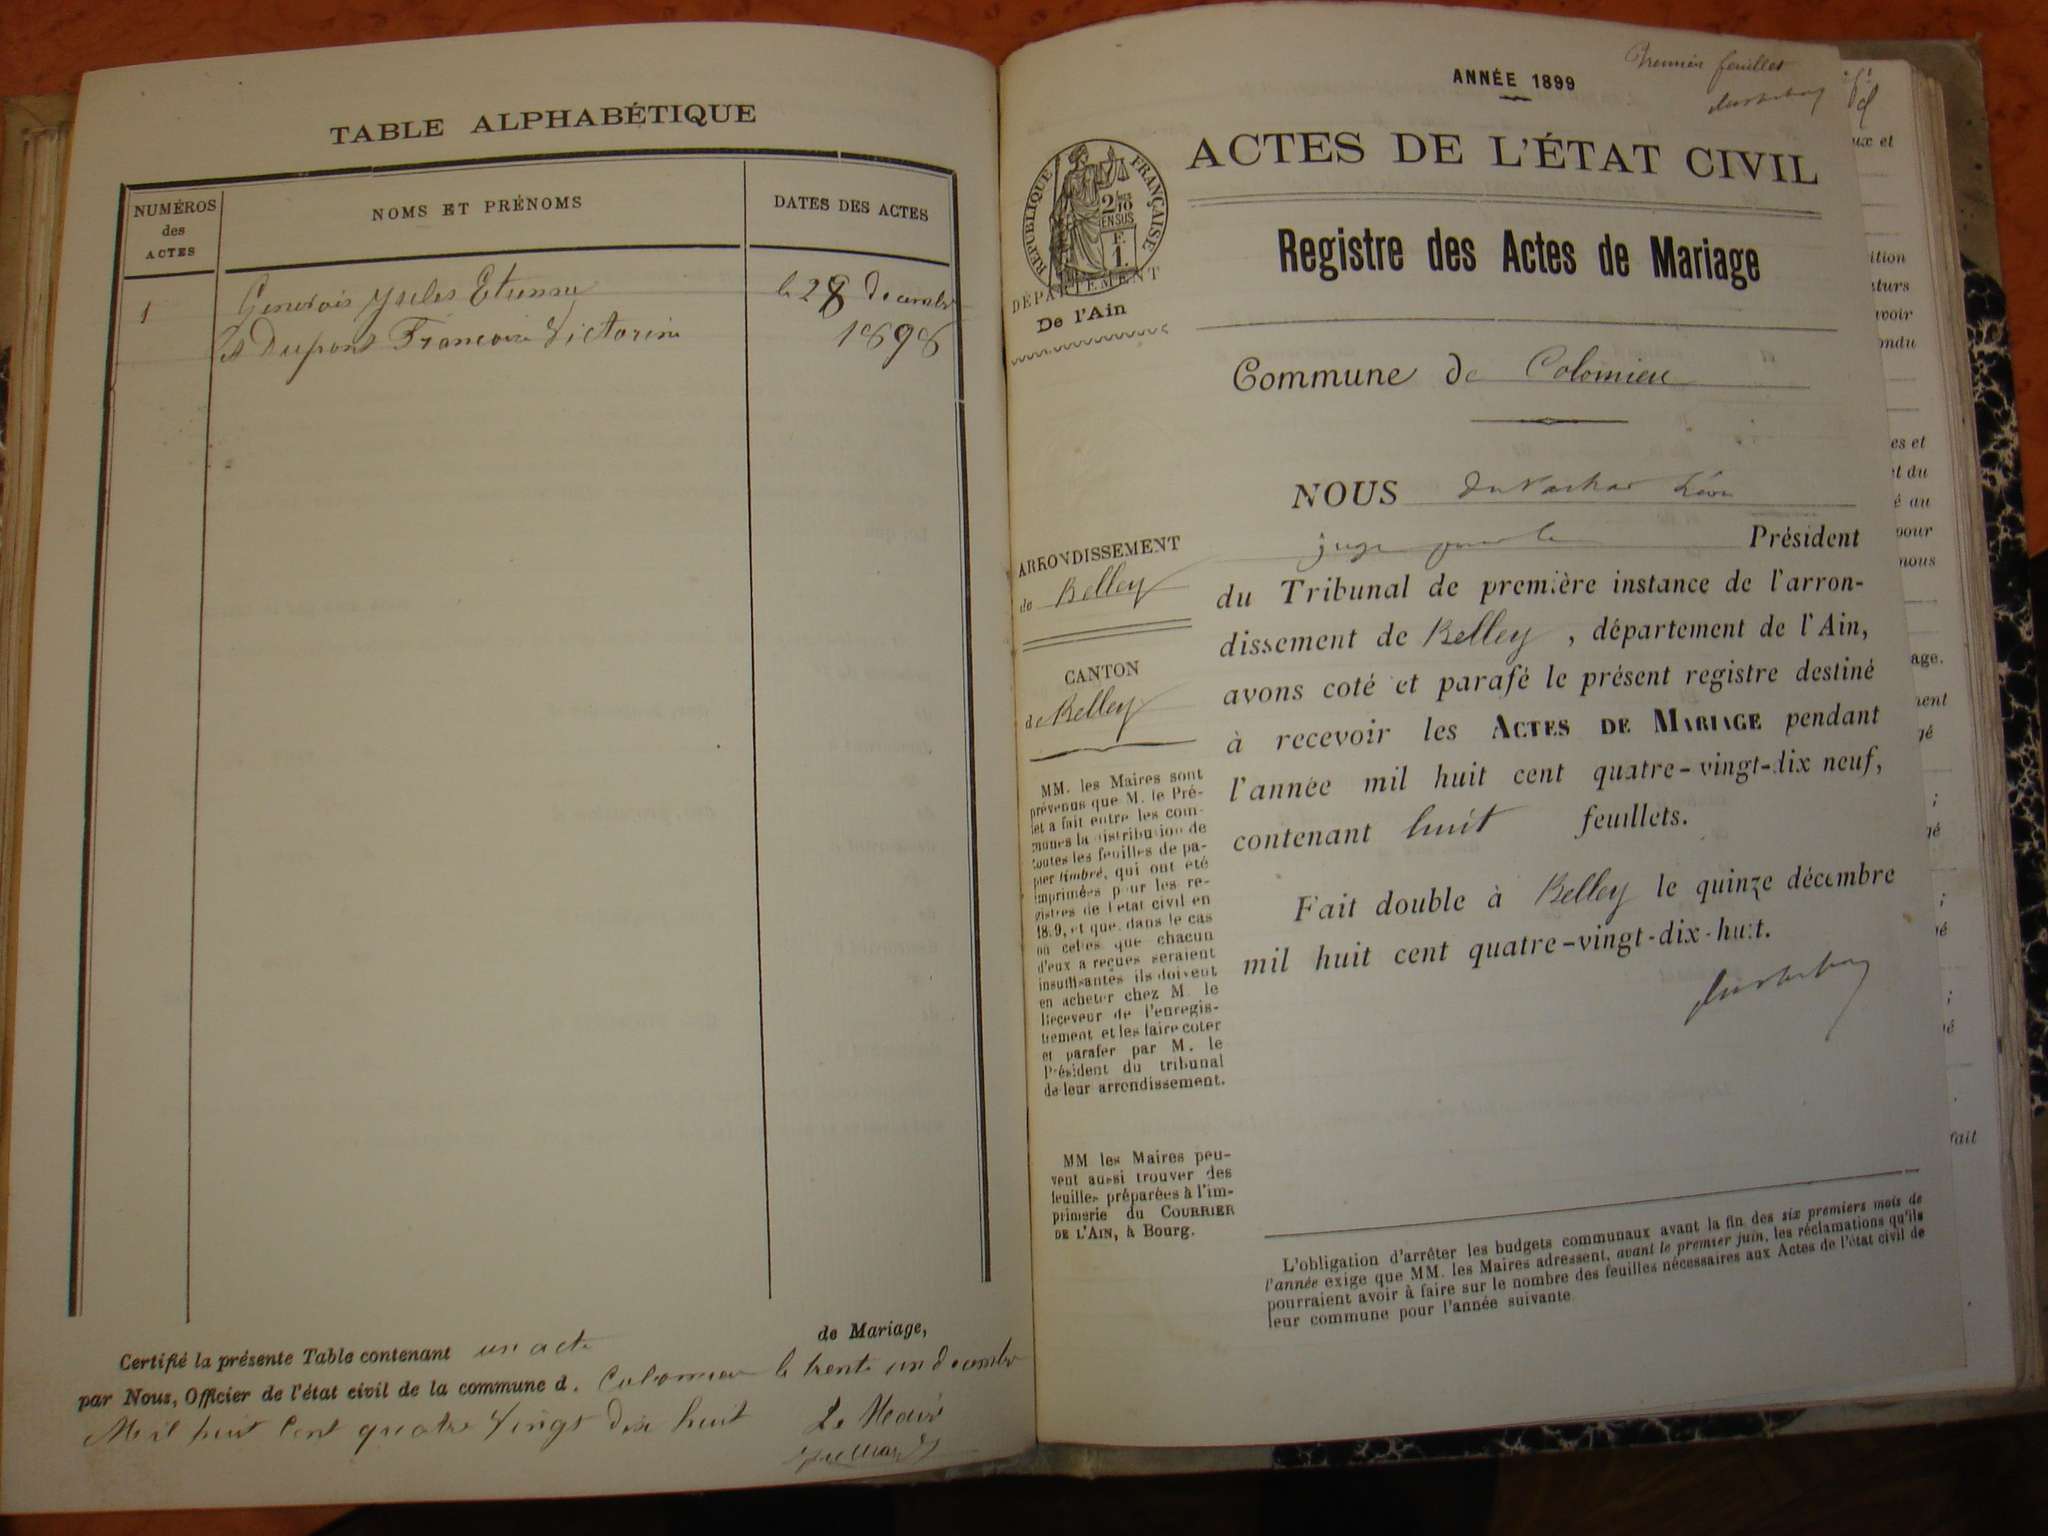 TABLE ALPHABÉTIQUE
NUMÉROS
des
ACTES
NOMS ET PRÉNOMS
DATES DES ACTES
1
Etienne
le 28 decembre
Et Dupont Victorine
1898
Certifié la présente Table contenant un acte de Mariage,
par Nous, Officier de l'état civil de la commune d. Colomieu le trente un decembre
Mil huit Cent quatre Vingt dix huit Le Maire
Premier feuillet
ANNÉE 1899
ACTES DE L'ÉTAT CIVIL
RÉPUBLIQUE FRANÇAISE
2 10
EN SUS
F.
1.
DÉPARTEMENT
De l'Ain
Registre des Actes de Mariage
Commune de Colomieu
NOUS
juge Président
du Tribunal de première instance de l'arron-
dissement de Belley, département de l'Ain,
avons coté et parafé le présent registre destiné
à recevoir les ACTES DE MARIAGE pendant
l'année mil huit cent quatre-vingt-dix neuf,
contenant huit feuillets.
Fait double à Belley le quinze décembre
mil huit cent quatre-vingt-dix-huit.
ARRONDISSEMENT
de Belley
CANTON
de Belley
MM. les Maires sont
prévenus que M. le Pré-
fet a fait entre les com-
munes la distribution de
toutes les feuilles de pa-
pier timbré, qui ont été
imprimées pour les re-
gistres de l'état civil en
1899, et que, dans le cas
où celles que chacun
d'eux a reçues seraient
insuffisantes ils doivent
en acheter chez M. le
Receveur de l'enregis-
trement et les faire coter
et parafer par M. le
Président du tribunal
de leur arrondissement.
MM les Maires peu-
vent aussi trouver des
feuilles préparées à l'im-
primerie du COURRIER
DE L'AIN, à Bourg.
L'obligation d'arrêter les budgets communaux avant la fin des six premiers mois de
l'année exige que MM. les Maires adressent, avant le premier juin, les réclamations qu'ils
pourraient avoir à faire sur le nombre des feuilles nécessaires aux Actes de l'état civil de
leur commune pour l'année suivante.